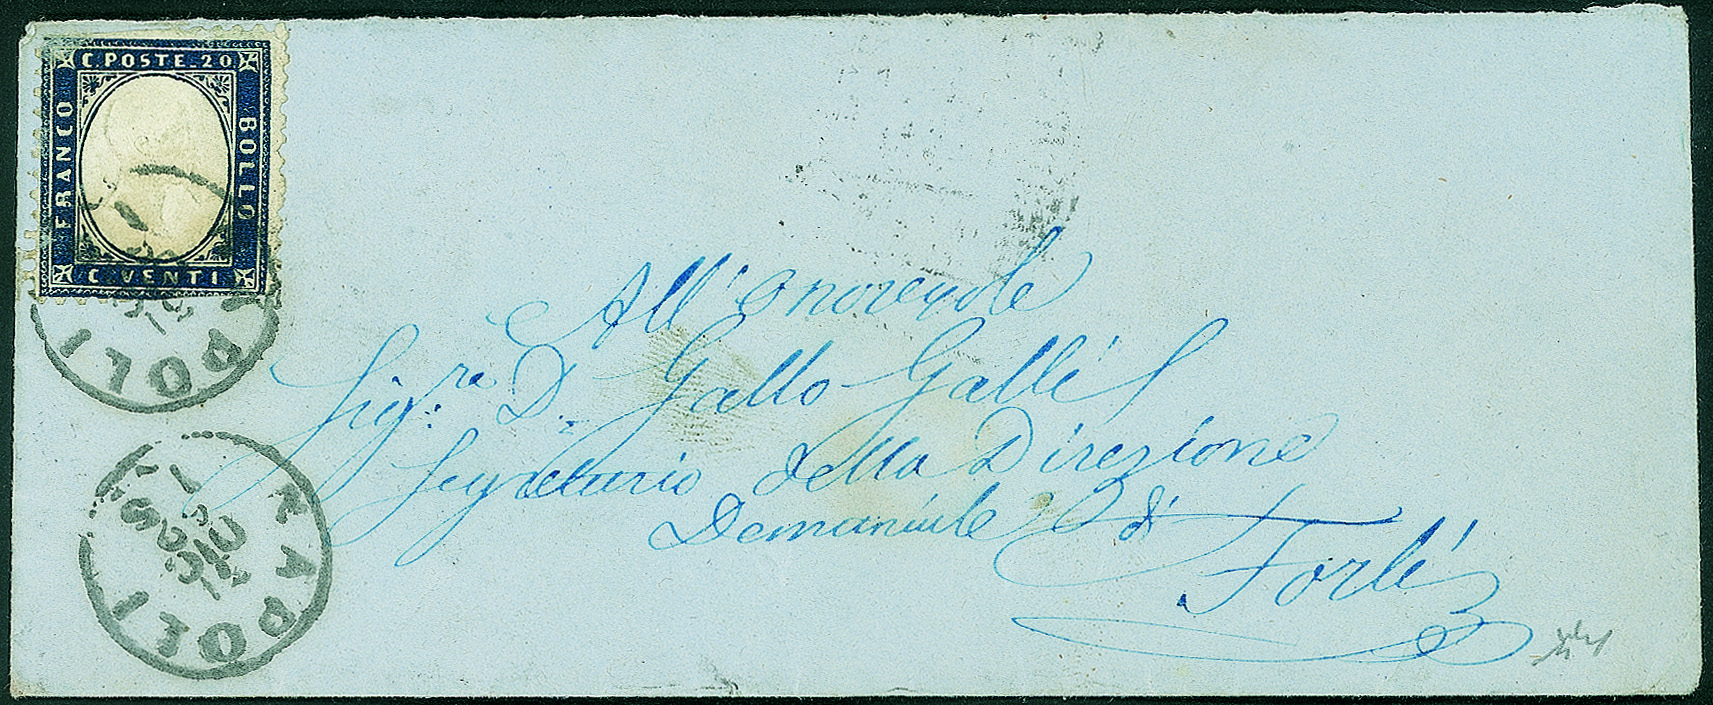 C. POSTE. 20
FRANCO
BOLLO
C. VENTI
POLI
NAPOLI
All'Onorevole
Sig.re D. Gallo Gallè
Segretario della Direzione
Demaniale di
Forlì